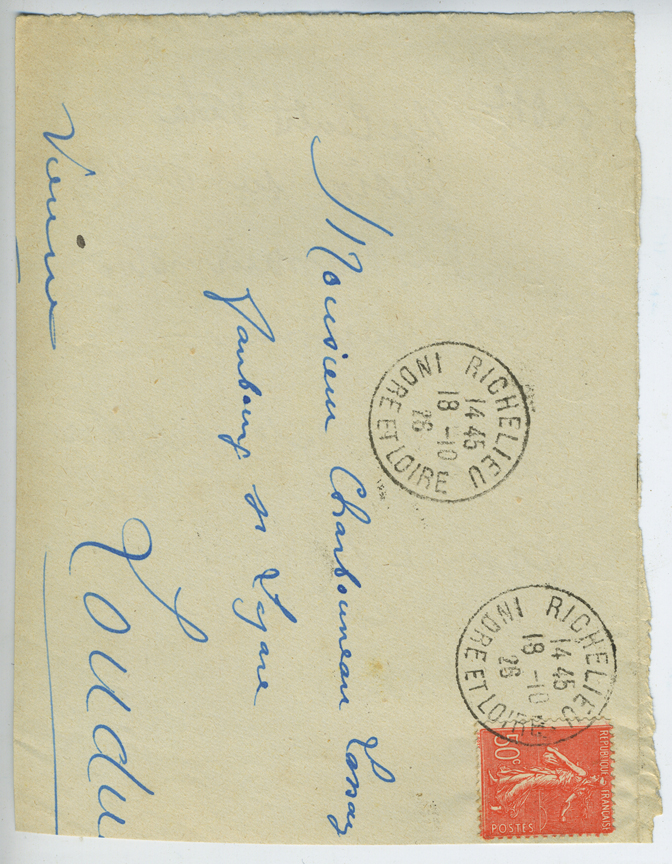 Monsieur Charbonneau Lansay
Faubourg St Lazare
Loudu
Vienne
RICHELIEU
14 45
18 -10
26
INDRE ET LOIRE
RICHELIEU
14 45
18 -10
26
INDRE ET LOIRE
50c
REPUBLIQUE FRANÇAISE
POSTES